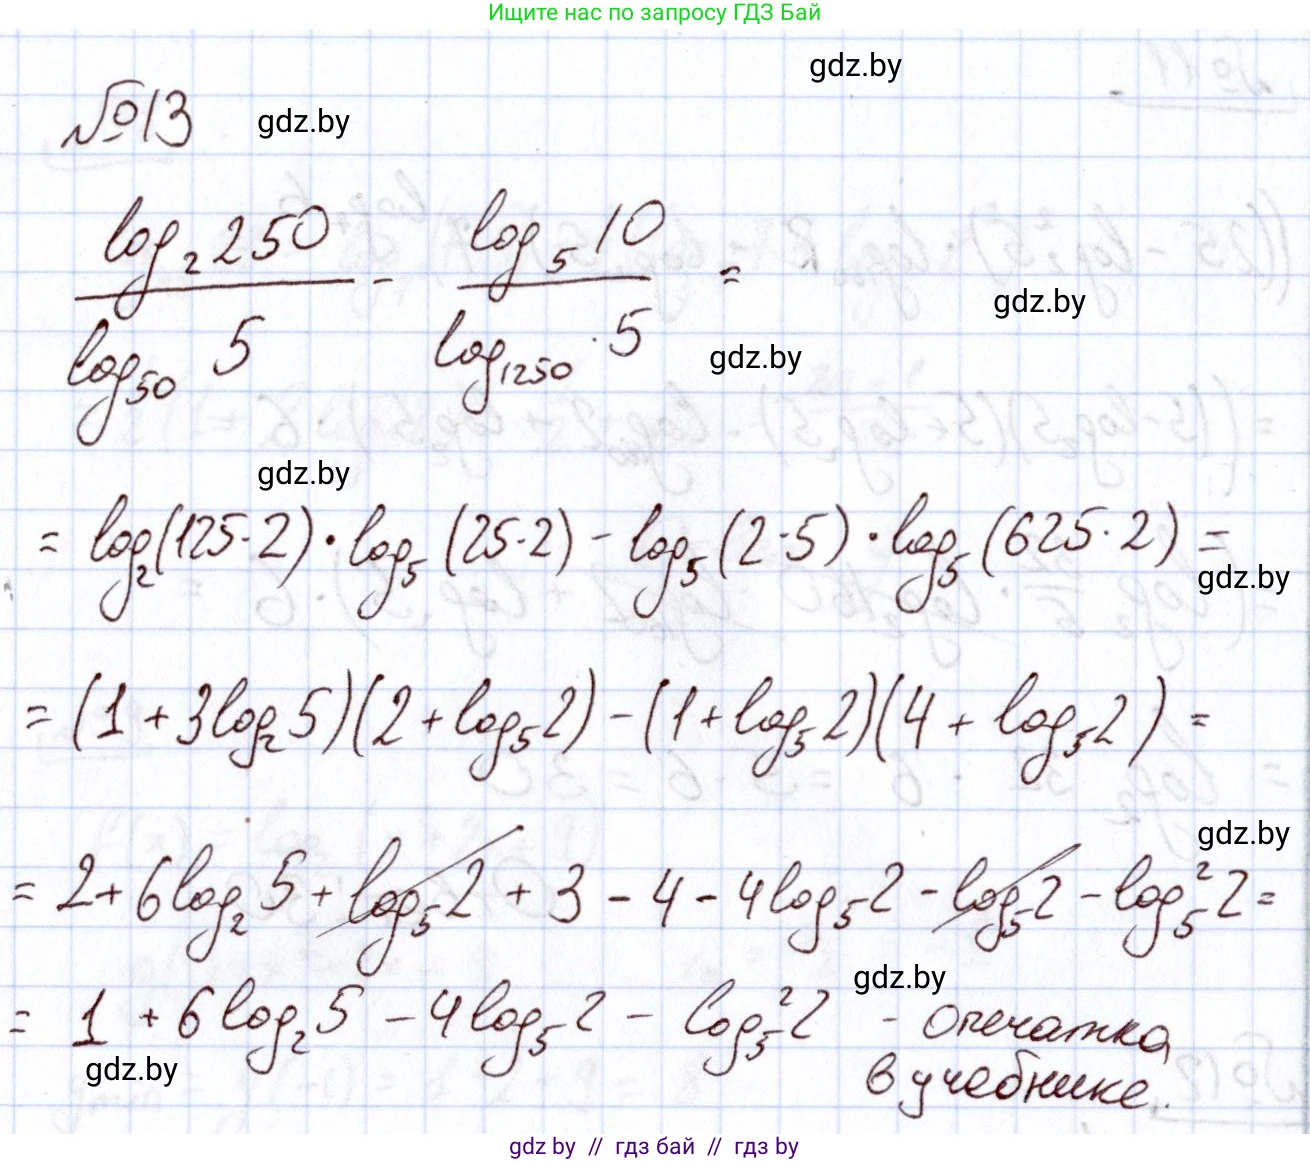 Ищите нас по запросу ГДЗ Бай
gdz.by
№13
gdz.by
log₂250 / log₅₀ 5 - log₅10 / log₁₂₅₀ 5 =
gdz.by
gdz.by
gdz.by
= log₂(125·2)·log₅(25·2) - log₅(2·5)·log₅(625·2) =
gdz.by
= (1 + 3log₂5)(2 + log₅2) - (1 + log₅2)(4 + log₅2) =
gdz.by
= 2 + 6log₂5 + log₅2 + 3 - 4 - 4log₅2 - log₅2 - log₅²2 =
gdz.by
= 1 + 6log₂5 - 4log₅2 - log₅²2 - опечатка
в учебнике.
gdz.by
gdz by // гдз бай // гдз by